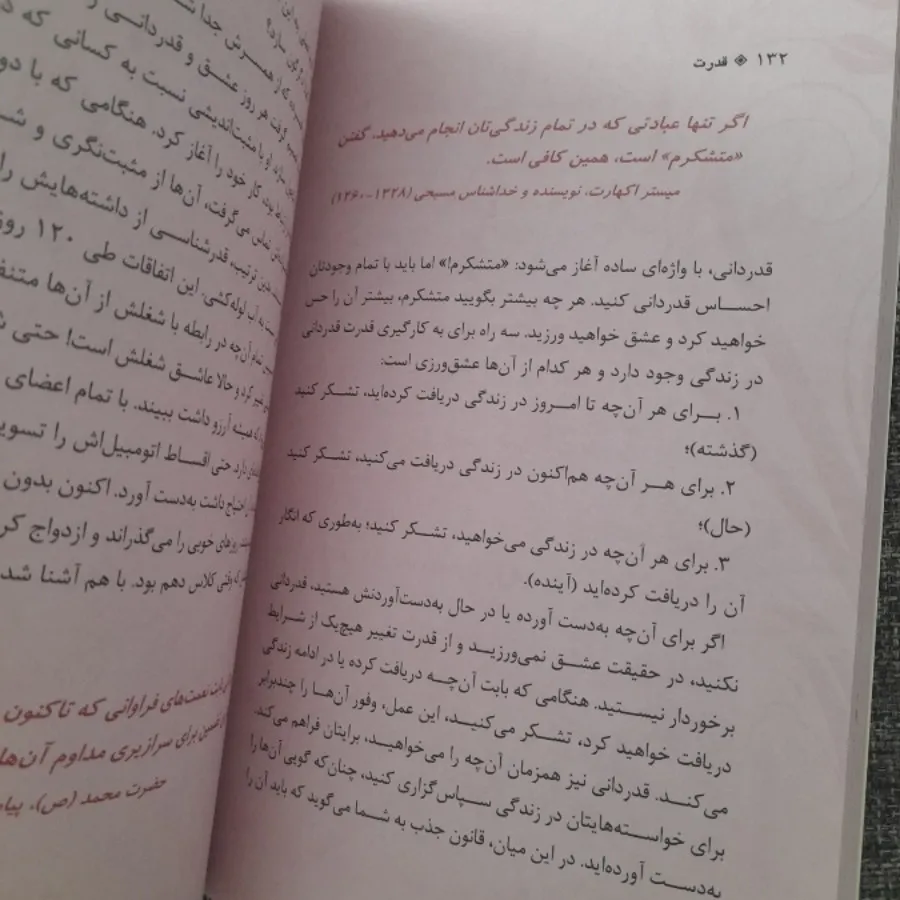 ۱۳۲ ◈ قدرت
اگر تنها عبادتی که در تمام زندگی‌تان انجام می‌دهید، گفتن
«متشکرم» است، همین کافی است.
میستر اکهارت، نویسنده و خداشناس مسیحی (۱۳۲۸-۱۲۶۰)
قدردانی، با واژه‌ای ساده آغاز می‌شود: «متشکرم!» اما باید با تمام وجودتان
احساس قدردانی کنید. هر چه بیشتر بگویید متشکرم، بیشتر آن را حس
خواهید کرد و عشق خواهید ورزید. سه راه برای به کارگیری قدرت قدردانی
در زندگی وجود دارد و هر کدام از آن‌ها عشق‌ورزی است:
۱. برای هر آن‌چه تا امروز در زندگی دریافت کرده‌اید، تشکر کنید
(گذشته)؛
۲. برای هر آن‌چه هم‌اکنون در زندگی دریافت می‌کنید، تشکر کنید
(حال)؛
۳. برای هر آن‌چه در زندگی می‌خواهید، تشکر کنید؛ به‌طوری که انگار
آن را دریافت کرده‌اید (آینده).
اگر برای آن‌چه به‌دست آورده یا در حال به‌دست‌آوردنش هستید، قدردانی
نکنید، در حقیقت عشق نمی‌ورزید و از قدرت تغییر هیچ‌یک از شرایط
برخوردار نیستید. هنگامی که بابت آن‌چه دریافت کرده یا در ادامه زندگی
دریافت خواهید کرد، تشکر می‌کنید، این عمل، وفور آن‌ها را چندبرابر
می‌کند. قدردانی نیز همزمان آن‌چه را می‌خواهید، برایتان فراهم می‌کند.
برای خواسته‌هایتان در زندگی سپاس‌گزاری کنید، چنان‌که گویی آن‌ها را
به‌دست آورده‌اید. در این میان، قانون جذب به شما می‌گوید که باید آن را
همسرش جدا
هر روز عشق و قدردانی
مثبت‌اندیشی نسبت به کسانی که
کار خود را آغاز کرد. هنگامی که با
تماس می‌گرفت، آن‌ها از مثبت‌نگری و
ترتیب، قدرشناسی از داشته‌هایش را
این اتفاقات طی ۱۲۰ روز
تمام آن‌چه در رابطه با شغلش از آن‌ها
کرد و حالا عاشق شغلش است! حتی
همیشه آرزو داشت ببیند. با تمام اعضای
دارد. حتی اقساط اتومبیل‌اش را
احتیاج داشت به‌دست آورد. اکنون بدون
روزهای خوبی را می‌گذراند و ازدواج
وقتی کلاس دهم بود. با هم آشنا
نعمت‌های فراوانی که تاکنون
برای سرازیری مداوم آن‌ها
حضرت محمد (ص)،